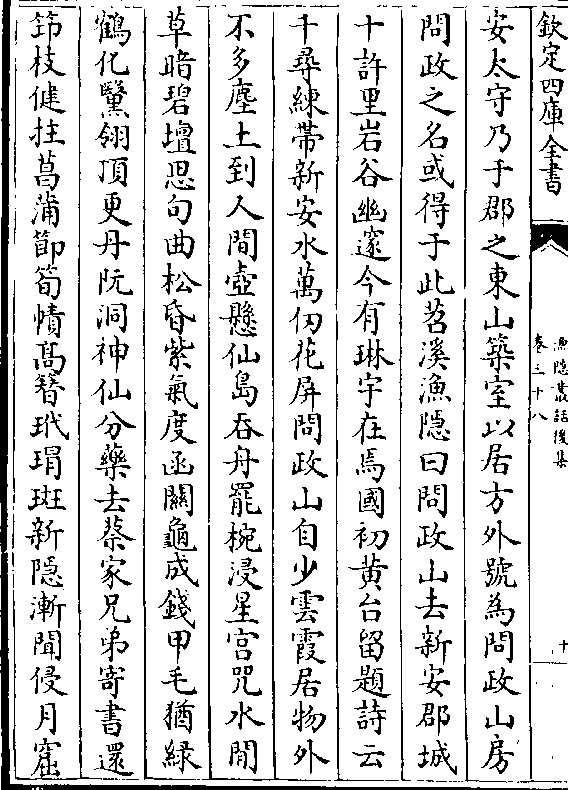 欽定四庫全書
漁隱叢話後集
卷三十八
十
安太守乃于郡之東山築室以居方外號為問政山房
問政之名或得于此苕溪漁隱曰問政山去新安郡城
十許里岩谷幽邃今有琳宇在焉國初黄台留題詩云
千尋練帶新安水萬仞花屏問政山自少雲霞居物外
不多塵土到人間壺懸仙島吞舟罷椀浸星宫咒水閒
草暗碧壇思句曲松昏紫氣度函關龜成錢甲毛猶緑
鶴化驪翎頂更丹阮洞神仙分藥去蔡家兄弟寄書還
筇枝健拄菖蒲節筍幘髙簪玳瑁斑新隠漸聞侵月窟